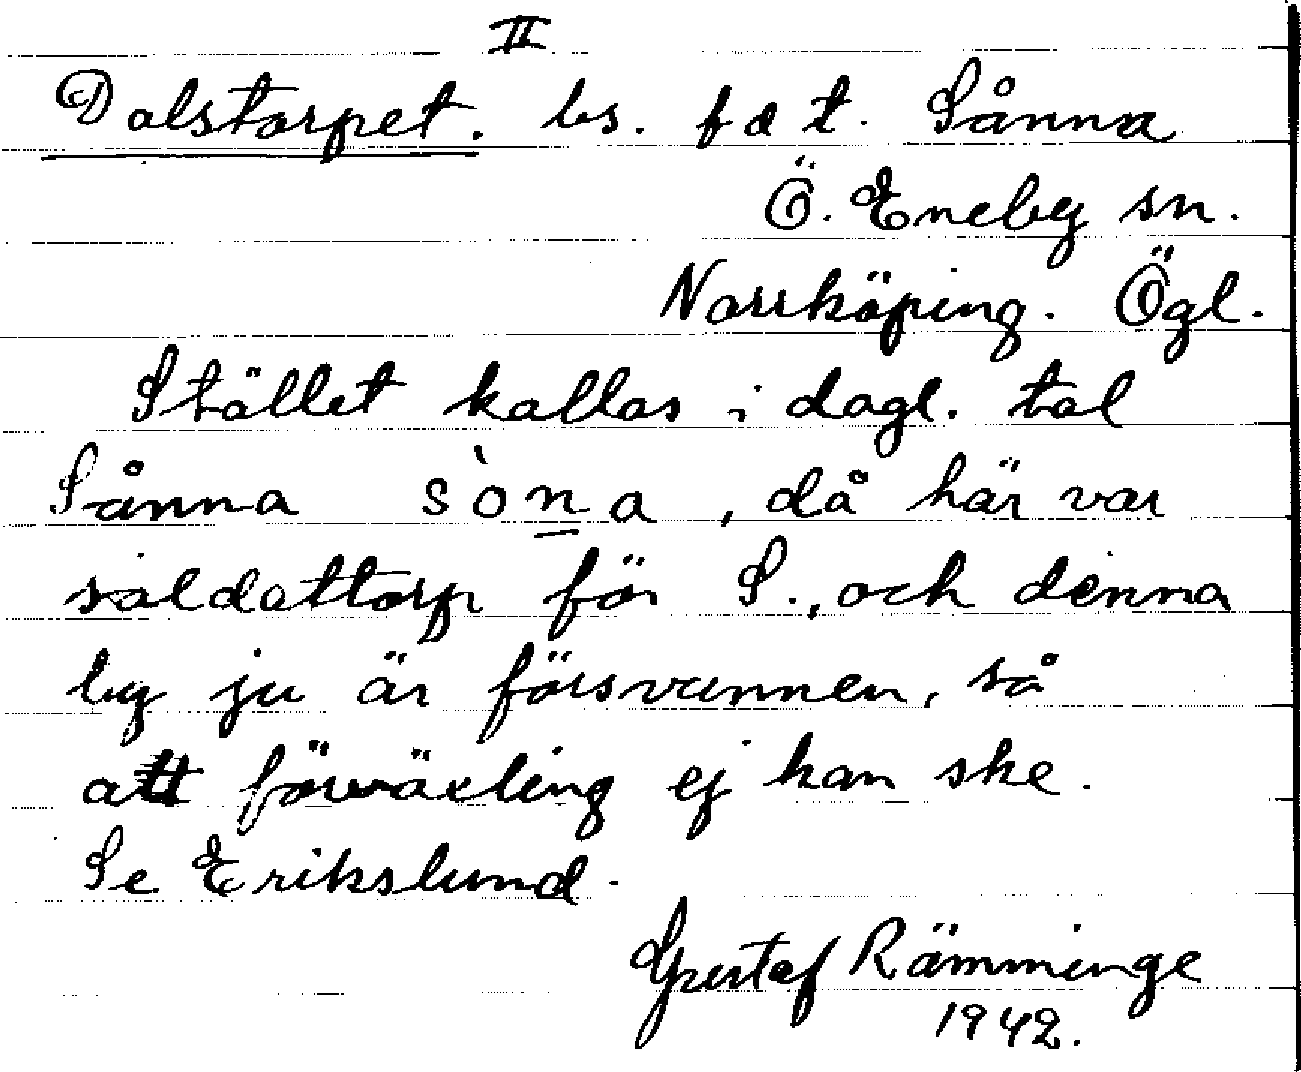 II
Dalstorpet. bs. f d t. Sånna
Ö. Eneby sn.
Norrköping. Ögl.
Stället kallas i dagl. tal
Sånna sòna, då här var
soldattorp för S., och denna
by ju är försvunnen, så
att förväxling ej kan ske.
Se Erikslund.
Gustaf Rämminge
1942.